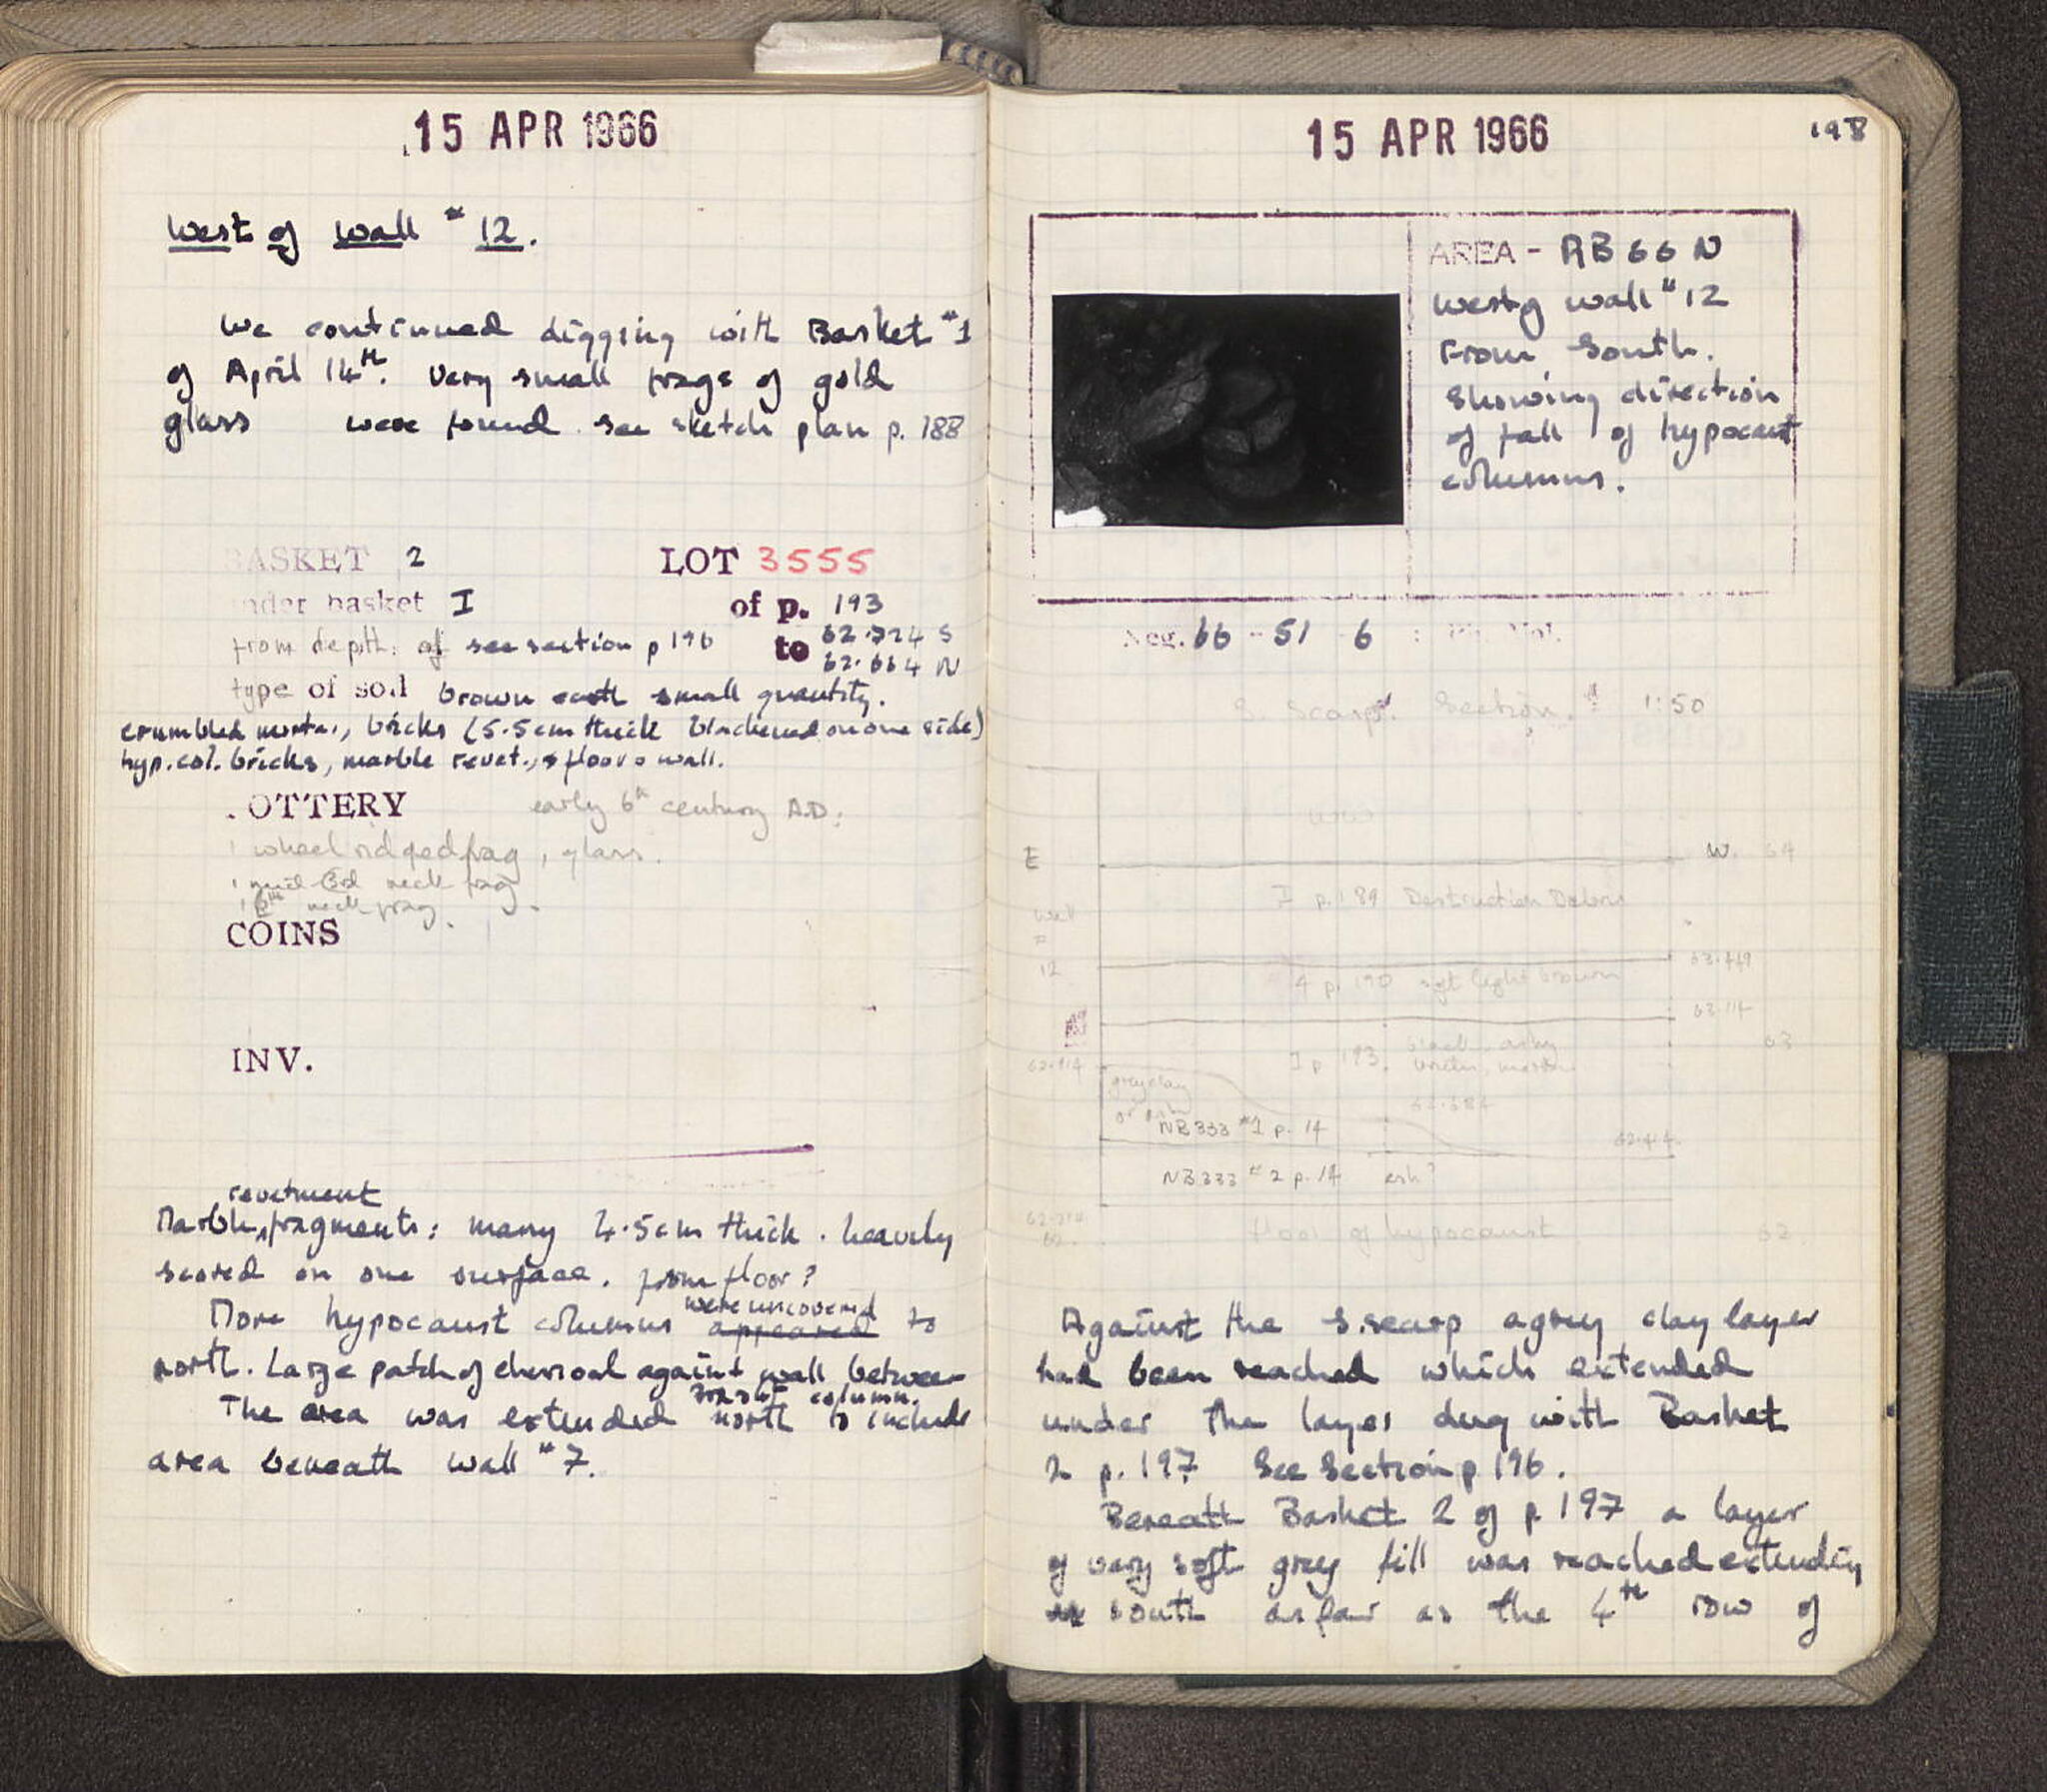 15 APR 1966
West of Wall # 12.
We continued digging with Basket #1
of April 14th. Very small frags of gold
glass were found. see sketch plan p. 188
BASKET 2 LOT 3555
under basket I of p. 193
from depth: of see section p 196 to 62.724 S
62.664 N
type of soil brown earth small quantity.
crumbled mortar, bricks (5.5cm thick blackened on one side)
hyp. col. bricks, marble revet., floor & wall.
POTTERY early 6th century A.D.
1 wheel ridged frag, glass.
1 mid 3rd neck frag
1 6th neck frag.
COINS
INV.
revetment
Marble, fragments: many 4.5cm thick. heavily
scored on one surface. from floor?
were uncovered
More hypocaust columns appeared to
north. Large patch of charcoal against wall between
column.
The area was extended north to include
area beneath wall #7.
15 APR 1966 198
AREA - AB 66 N
West of wall #12
From South.
Showing direction
of fall of hypocaust
columns.
Neg. 66 - 51 6
S. Scarp Section 1:50
E W. 64
I p. 189 Destruction Debris
wall
#
12 63.449
4 p. 190 soft light brown
63.114
I p 193. black ashy 63
62.914
grey clay
or ash
NB 333 #1 p. 14
NB 333 #2 p. 14 ash?
floor of hypocaust 62
Against the S. scarp a grey clay layer
had been reached which extended
under the layer dug with Basket
2 p. 197 See Section p 196.
Beneath Basket 2 of p 197 a layer
of very soft grey fill was reached extending
south as far as the 4th row of